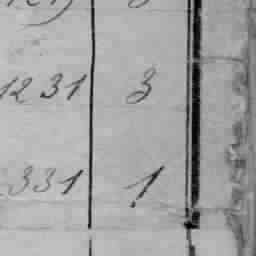 1231 3
331 1